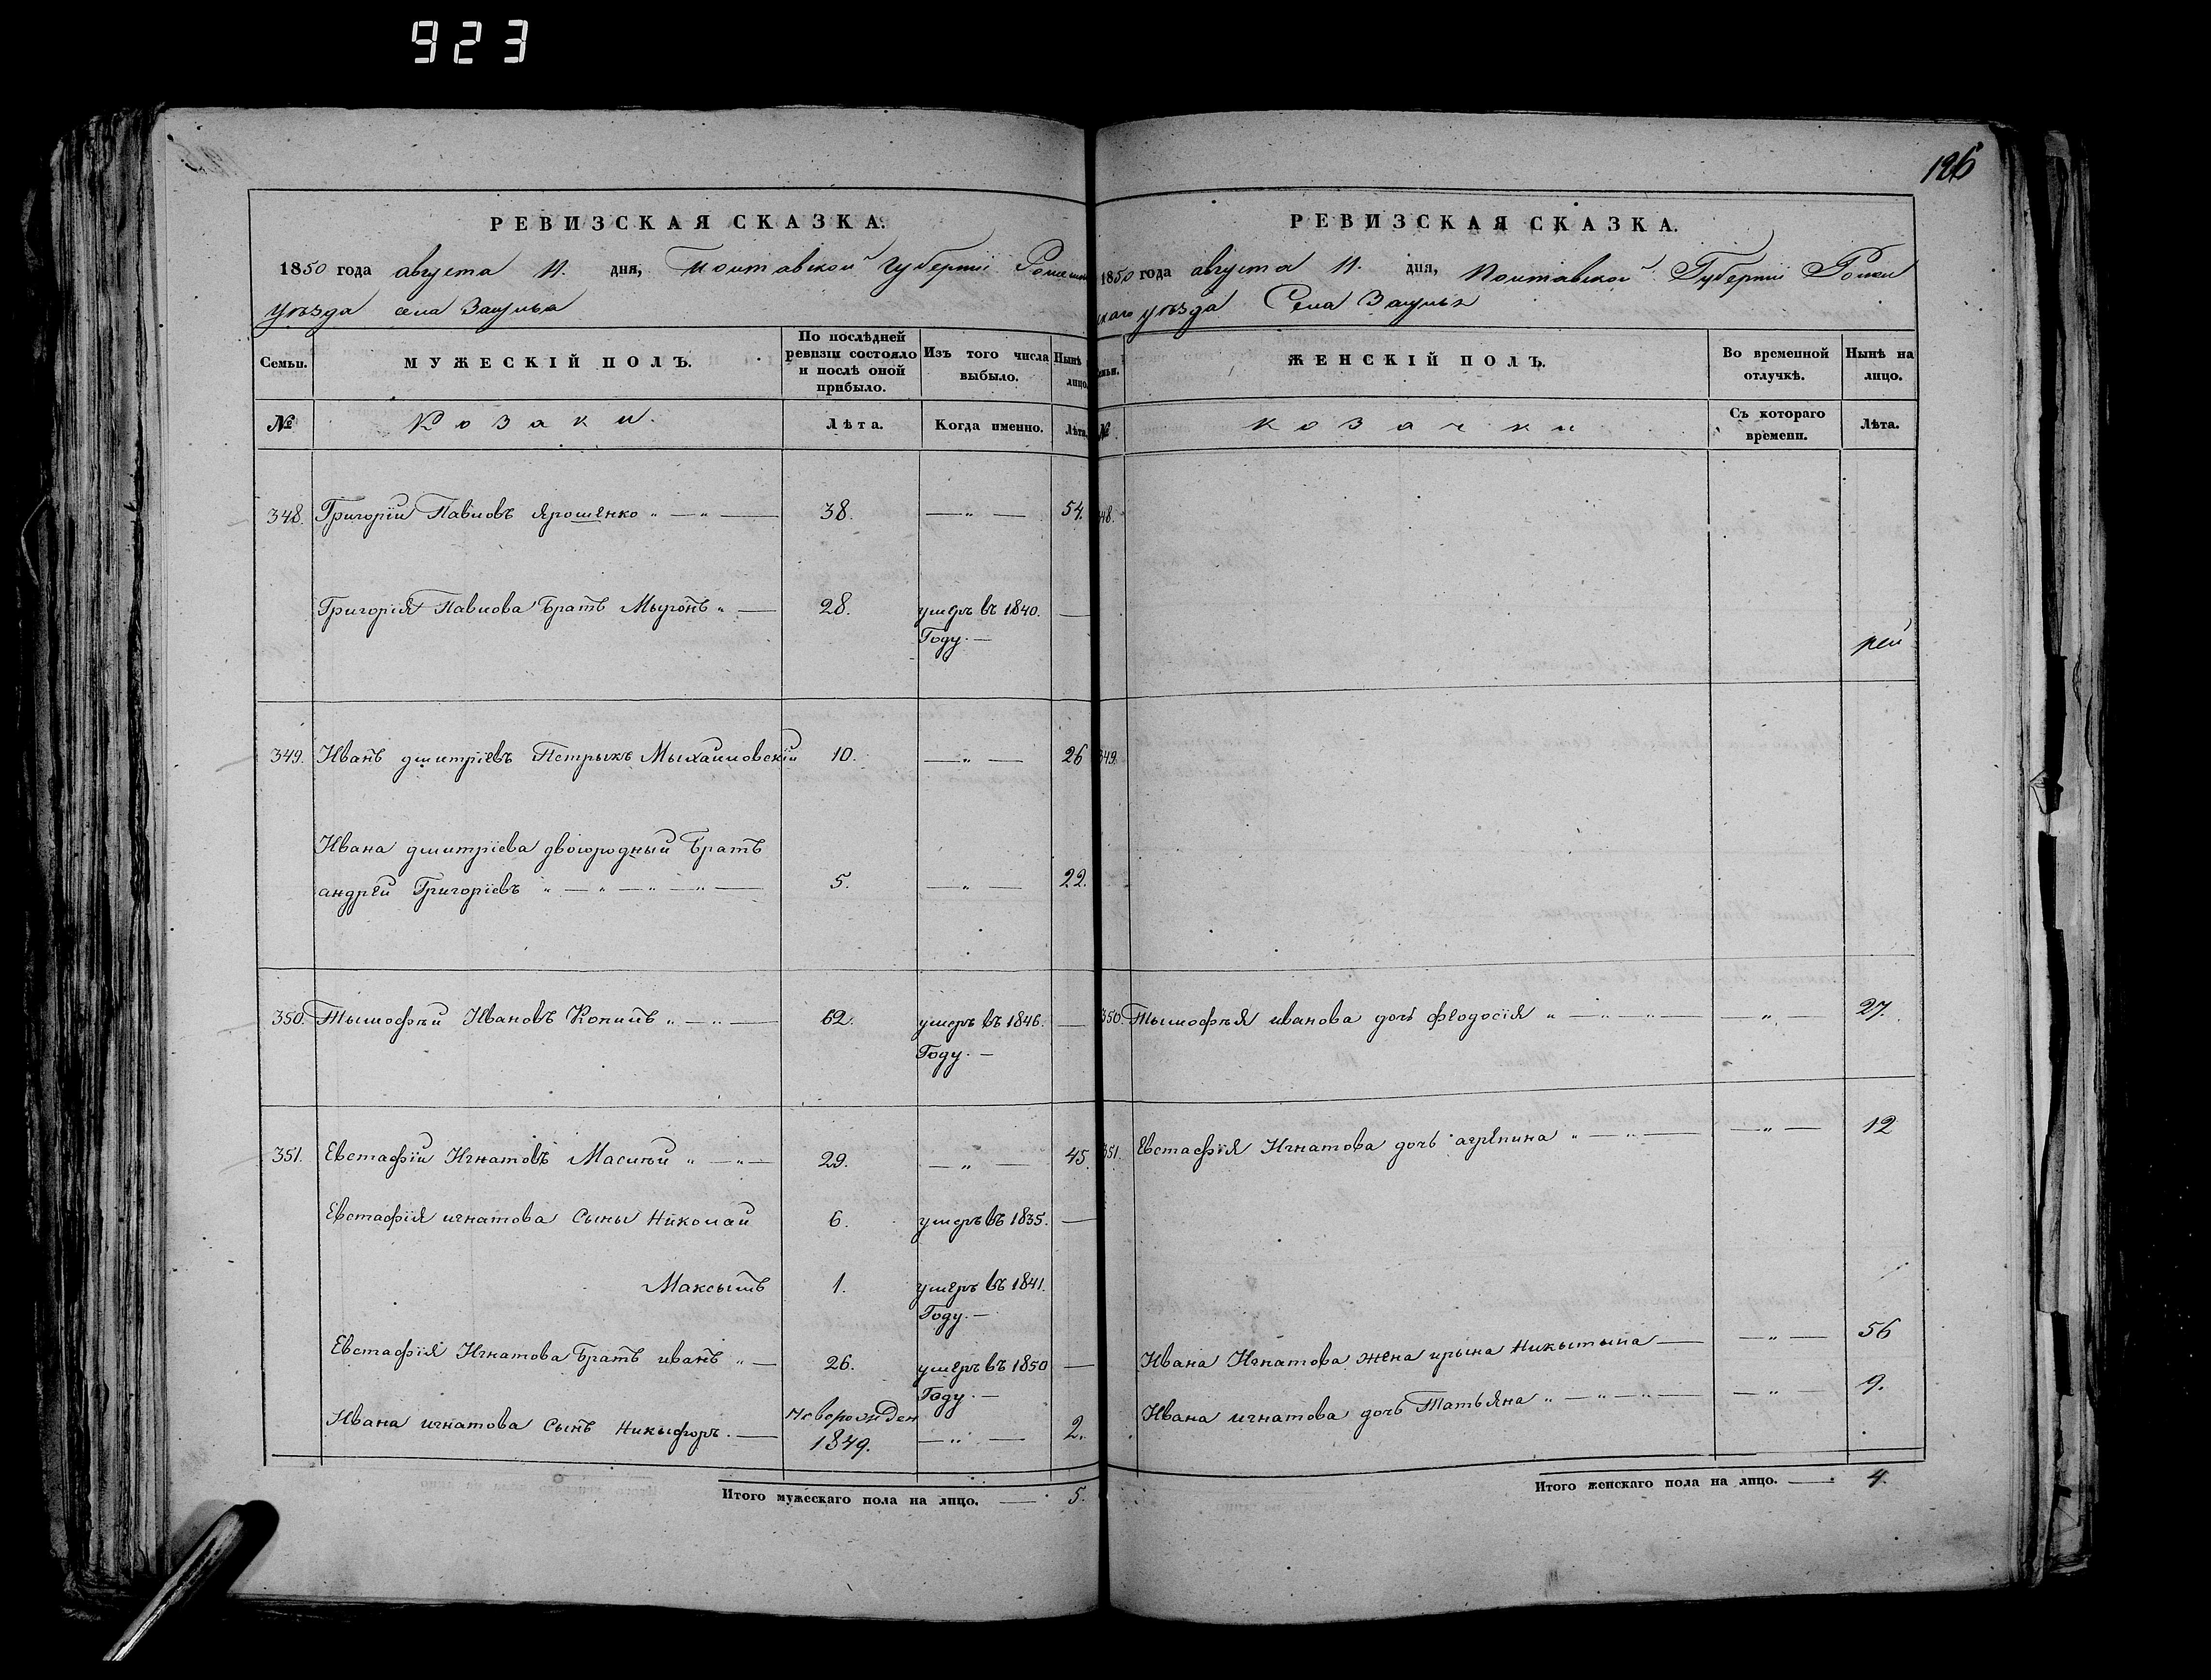 923
126
РЕВИЗСКАЯ СКАЗКА.
1850 года августа 11. дня, Полтавской губернии Роменского
уѣзда села Засулья
Семьи. МУЖЕСКІЙ ПОЛЪ. По послѣдней ревизіи состояло и послѣ оной прибыло. Изъ того числа выбыло. Нынѣ лицо
№ Козаки. Лѣта. Когда именно. Лѣта
348. Григорій Павловъ Ярошенко „ — „ — 38. — „ — 54.
Григорія Павлова братъ Мыронъ „ — 28. умеръ въ 1840. —
Году. —
349. Иванъ дмитріевъ Петрыкъ Мыхайловскій 10. — „ — 26
Ивана дмитріева двоюродный братъ
андрей Григоріевъ „ — „ — „ — „ — 5. — „ — 22.
350. Тымофѣй Ивановъ Копилъ „ — „ — 62. умеръ въ 1846. —
Году. —
351. Евстафій Игнатовъ Маслѣй „ — „ — 29. — „ — 45.
Евстафія игнатова Сыны Николай 6. умеръ въ 1835. —
Максымъ 1. умеръ въ 1841.
Году. —
Евстафія Игнатова братъ иванъ „ — 26. умеръ въ 1850 —
Году. —
Ивана игнатова Сынъ Никыфоръ. — новорожден
1849. — „ — 2.
Итого мужескаго пола на лицо. — 5.
РЕВИЗСКАЯ СКАЗКА.
1850 года августа 11. дня, Полтавской Губерніи Ромен
скаго уѣзда Села Засулья
Семьи. ЖЕНСКІЙ ПОЛЪ. Во временной отлучкѣ. Нынѣ на лицо.
№ Козачки Съ котораго времени. Лѣта.
348.
349.
350. Тымофѣя иванова дочь феодосія „ — „ — „ — — „ — 27.
351. Евстафія Игнатова дочь агрепина „ — „ — — „ — 12
Ивана Игнатова жена ирына Никытына — — „ — 56
Ивана игнатова дочь Татьяна „ — „ — „ — — „ — 9.
Итого женскаго пола на лицо. — 4.